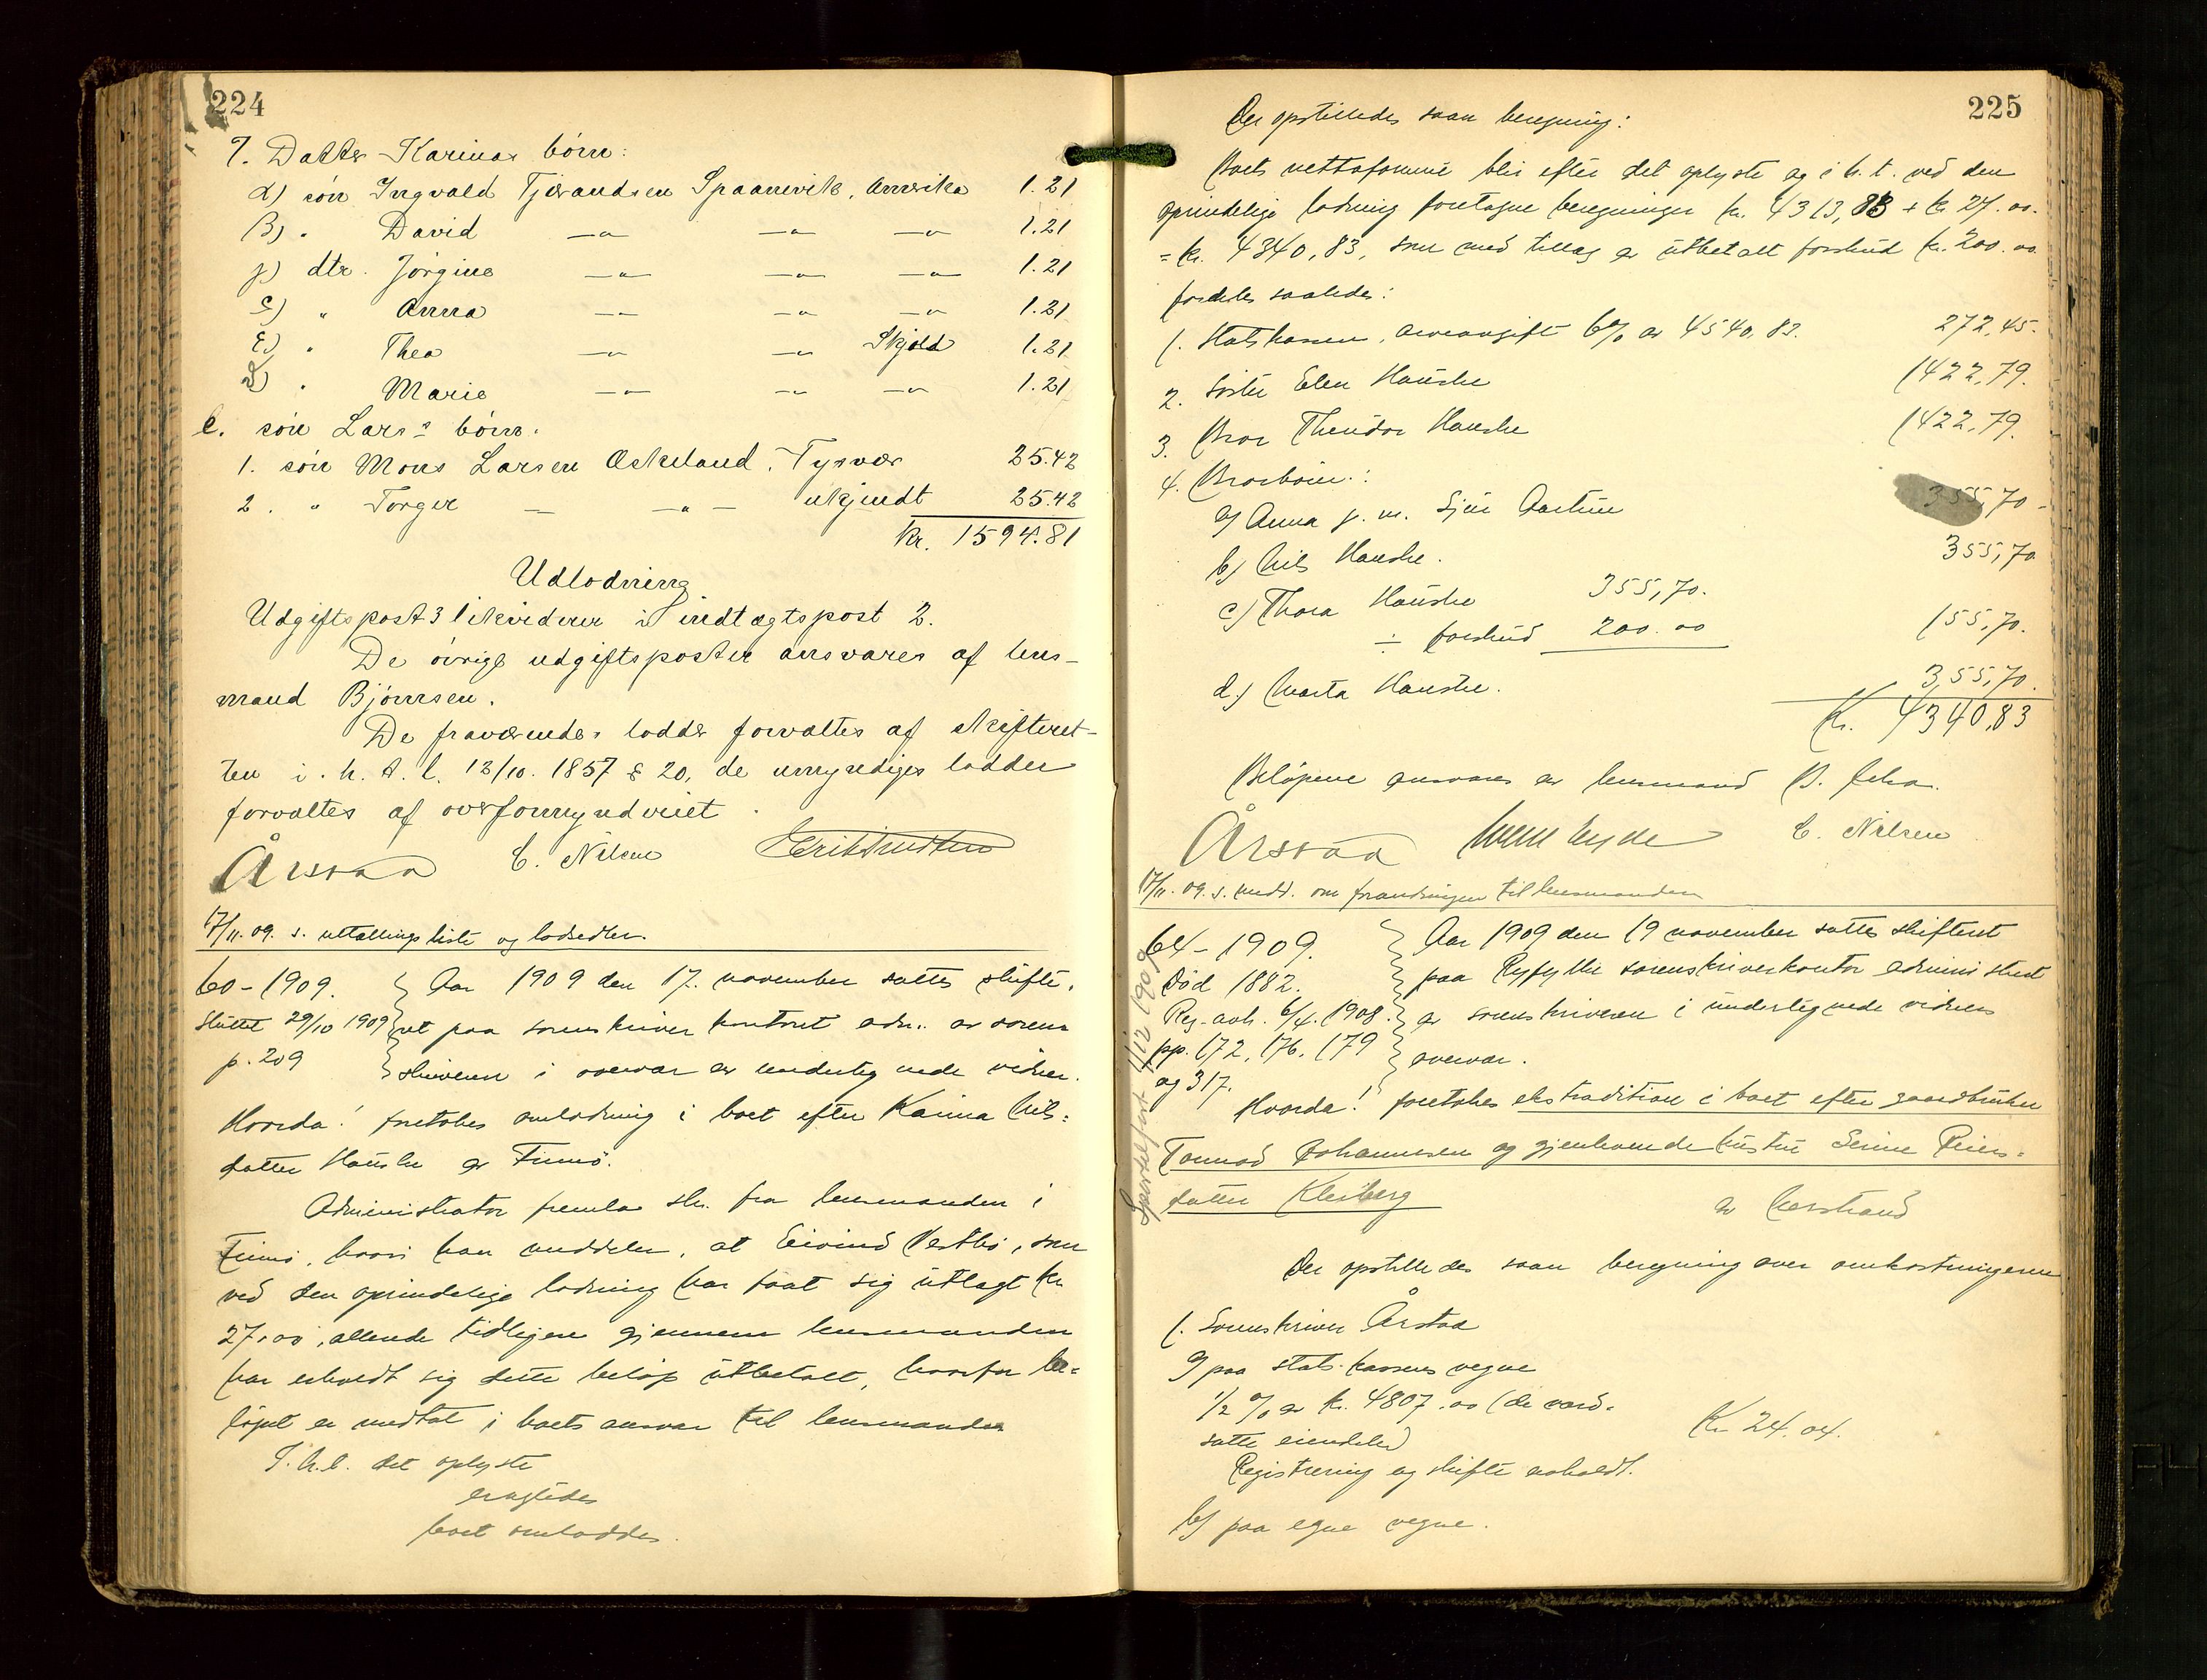 224
7. Datter Karinas börn:
α) sön Ingvald Tjerandsen Spaanevik, Amerika 1.21
β) " David —"— —"— —"— 1.21
γ) dtr. Jörgine —"— —"— —"— 1.21
" Anna —"— —"— —"— 1.21
ε) " Thea —"— —"— Skjold 1.21
" Marie —"— —"— —"— 1.21
l. sön Lars's börn:
1. sön Mons Larsen Eskeland, Tysvær 25.42
2. " Torger — —"— ukjendt 25.42
Kr. 1594.81
Udlodning
Udgiftspost 3 likviderer i indtægtspost 2.
De övrige udgiftsposter ansvares af lens-
mand Björnsen.
De fraværendes lodder forvaltes af skifteret-
ten i. h. t. l. 12/10. 1857 § 20, de umyndiges lodder
forvaltes af overformynderiet.
Årstad E. Nilsen
17/11. 09. s. uttællingsliste og lodsedler.
60-1909. Aar 1909 den 17. november sattes skifte-
Sluttet 29/10 1909 ret paa sorenskriverkontoret adm. av soren-
p. 209 skriveren i overvær av undertegnede vidner.
Hvorda! foretokes omlodning i boet efter Karina Nils-
datter Hauske av Finnö.
Administrator fremla skr. fra lensmanden i
Finnö, hvori han meddeler, at Eivind Vestbö, som
ved den oprindelige lodning har faat sig utlagt kr
27,00, allerede tidligere gjennem lensmanden
har erholdt sig dette belöp utbetalt, hvorfor be-
löpet er medtat i boets ansvar til lensmanden
I. h. t. det oplyste
eragtedes
boet omloddes.
225
Der opstilledes saan beregning:
Boets nettoformue blir efter det oplyste og i h. t. ved den
oprindelige lodning foretagne beregninger kr. 4313,83 + kr 27.00.
= kr. 4340,83, som med tillæg av utbetalt forskud kr. 200.00
fordeles saaledes:
1. Statskassen, arveavgift 6% av 4540,83. 272,45.
2. Söster Elen Hauske 1422,79.
3. Bror Theodor Hauske 1422,79.
4. Brorbörn:
a) Anna g. m. Sjur 355,70
b) Nils Hauske. 355,70
c) Thora Hauske 355,70.
÷ forskud 200.00 155,70.
d.) Marta Hauske. 355,70.
Kr. 4340,83
Belöpene ansvares av lensmand
Årstad E. Nilsen
17/11. 09. s. medd. om forandringen til lensmanden
64-1909. Aar 1909 den 19 november sattes skifteret
Död 1882. paa Ryfylke sorenskriverkontor administrert
Reg. avh. 6/4. 1908. av sorenskriveren i undertegnede vidners
pp. 172, 176, 179 overvær.
og 317.
Hvorda! foretokes ekstradition i boet efter gaardbruker
Tormod Johannesen og gjenlevende hustru Serine Reiers-
datter Kleiberg av Nerstrand
Sportelfört 1/12 1909
Der opstilledes saan beregning over omkostningerne
1. Sorenskriver Årstad
a) paa stats-kassens vegne
1/2 % av kr. 4807.00 (de værd-
satte eiendeler) Kr 24.04.
Registrering og skifte avholdt.
b) paa egne vegne.